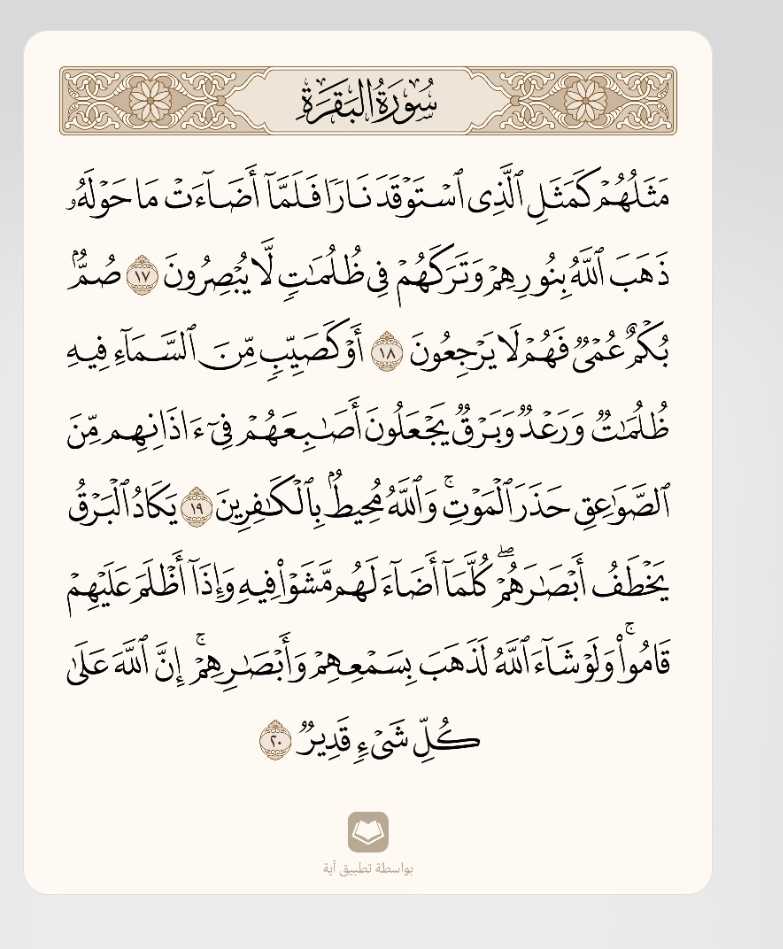 سُورَةُ البَقَرَةِ
مَثَلُهُمْ كَمَثَلِ ٱلَّذِى ٱسْتَوْقَدَ نَارًا فَلَمَّآ أَضَآءَتْ مَا حَوْلَهُۥ
ذَهَبَ ٱللَّهُ بِنُورِهِمْ وَتَرَكَهُمْ فِى ظُلُمَـٰتٍ لَّا يُبْصِرُونَ ١٧ صُمٌّۢ
بُكْمٌ عُمْىٌ فَهُمْ لَا يَرْجِعُونَ ١٨ أَوْ كَصَيِّبٍ مِّنَ ٱلسَّمَآءِ فِيهِ
ظُلُمَـٰتٌ وَرَعْدٌ وَبَرْقٌ يَجْعَلُونَ أَصَـٰبِعَهُمْ فِىٓ ءَاذَانِهِم مِّنَ
ٱلصَّوَٰعِقِ حَذَرَ ٱلْمَوْتِ ۚ وَٱللَّهُ مُحِيطٌۢ بِٱلْكَـٰفِرِينَ ١٩ يَكَادُ ٱلْبَرْقُ
يَخْطَفُ أَبْصَـٰرَهُمْ ۖ كُلَّمَآ أَضَآءَ لَهُم مَّشَوْا۟ فِيهِ وَإِذَآ أَظْلَمَ عَلَيْهِمْ
قَامُوا۟ ۚ وَلَوْ شَآءَ ٱللَّهُ لَذَهَبَ بِسَمْعِهِمْ وَأَبْصَـٰرِهِمْ ۚ إِنَّ ٱللَّهَ عَلَىٰ
كُلِّ شَىْءٍ قَدِيرٌ ٢٠
بواسطة تطبيق آية